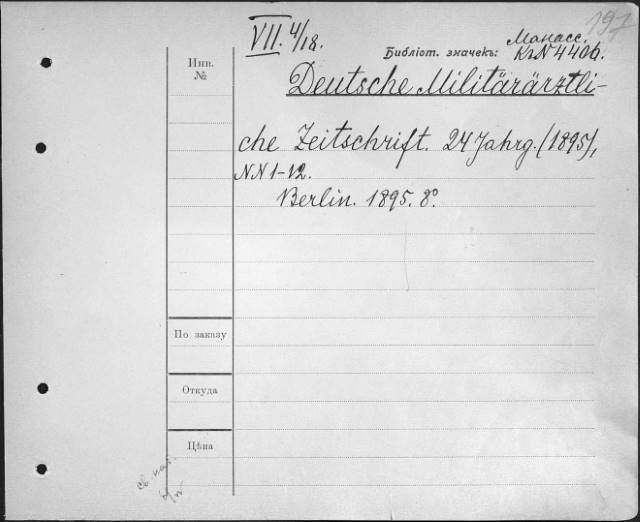 197
VII. 4/18.
Манасс.
Библіот. значекъ: Кг N 4406.
Инв.
№
Deutsche Militärärztli-
che Zeitschrift. 24 Jahrg. (1895),
NN 1-12.
Berlin. 1895. 8°.
По заказу
Откуда
Цѣна